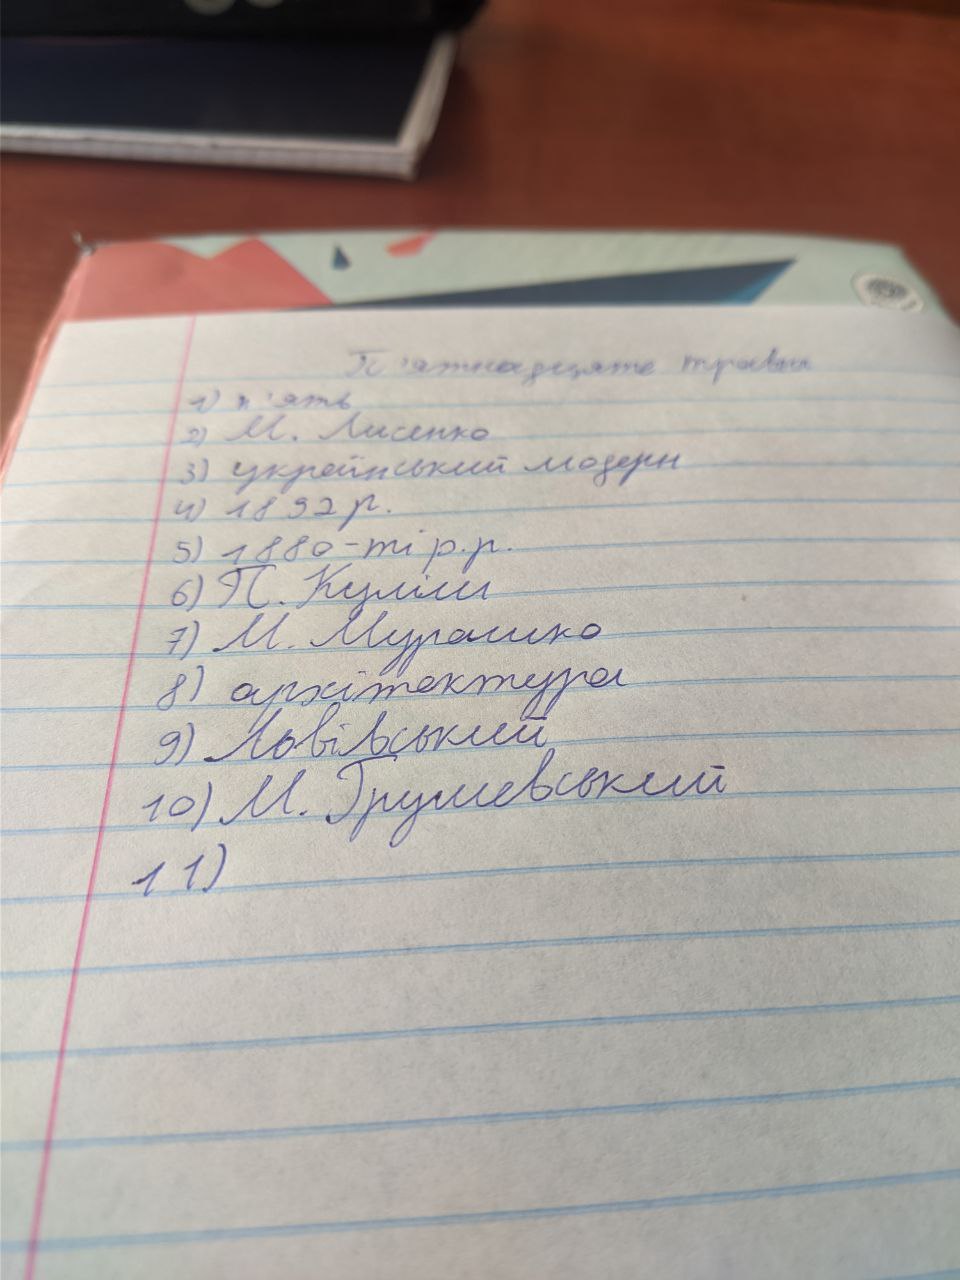 П'ятнадцяте травня
1) п'ять
2) М. Лисенко
3) український модерн
4) 1892 р.
5) 1880-ті р.р.
6) П. Куліш
7) М. Мурашко
8) архітектура
9) Львівський
10) М. Грушевський
11)